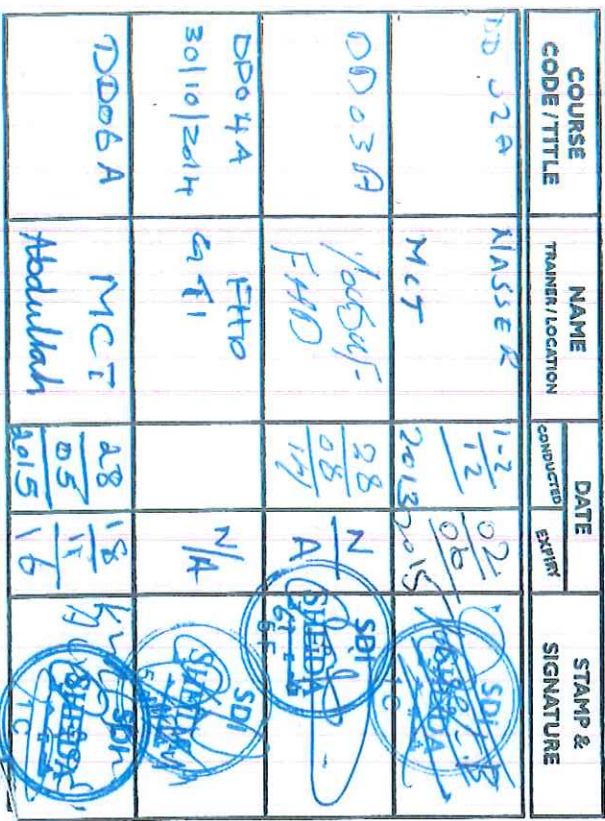 COURSE
CODE / TITLE
NAME
TRAINER / LOCATION
DATE
CONDUCTED
EXPIRY
STAMP &
SIGNATURE
NASSER
MCT
1-2
12
2013
02
06
2015
SDI
SHEIDA
TC
DD03A
Yousuf-
FHD
28
08
14
N
A
SDI
SHEIDA
DD04A
30/10/2014
FHD
GTI
N/A
SDI
SHEIDA
DD06A
MCT
Abdullah
28
05
2015
18
11
16
SDI
SHEIDA
TC